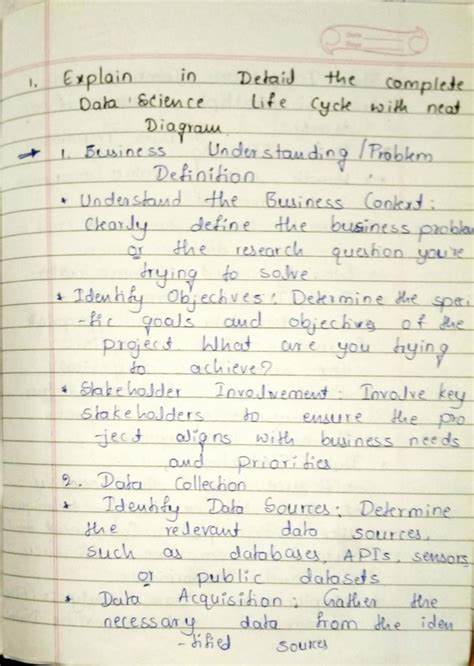 1. Explain in Detail the complete
Data Science Life Cycle with neat
Diagram
→ 1. Business Understanding / Problem
Definition
• Understand the Business Context :
Clearly define the business problem
or the research question you're
trying to solve
• Identify Objectives : Determine the speci
-fic goals and objectives of the
project What are you trying
to achieve?
• Stakeholder Involvement : Involve key
stakeholders to ensure the pro
-ject aligns with business needs
and priorities
2. Data Collection
• Identify Data Sources : Determine
the relevant data sources,
such as databases, APIs, sensors
or public datasets
• Data Acquisition : Gather the
necessary data from the iden
-tified sources